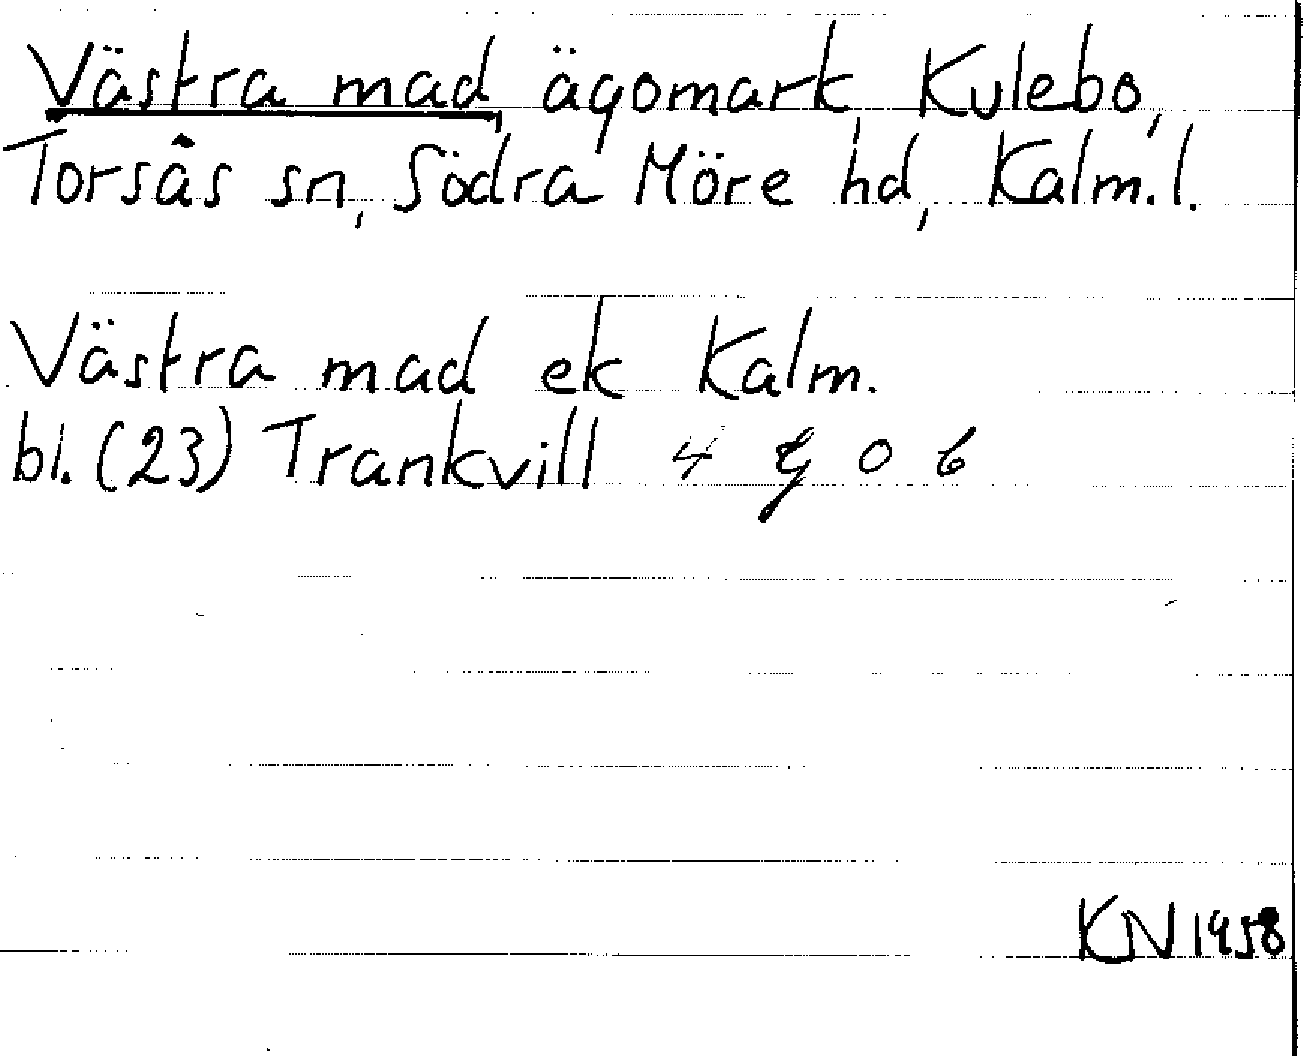 Västra mad, ägomark Kulebo,
Torsås sn, Södra Möre hd, Kalm. l.
Västra mad ek Kalm.
bl. (23) Trankvill 4 g o b
KN 1958